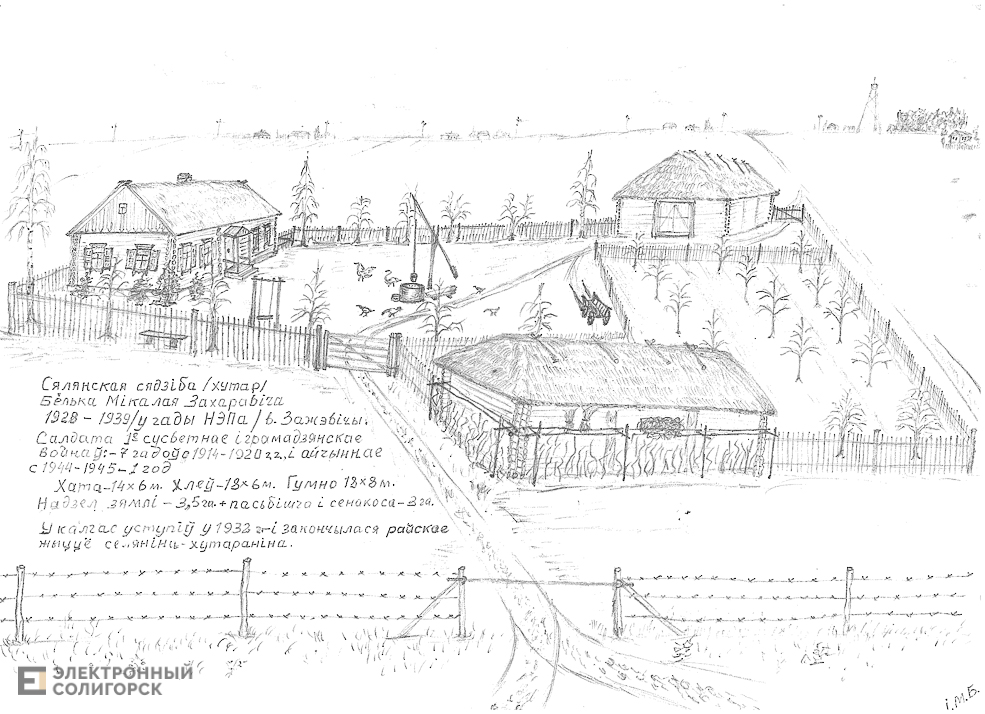 Сялянская сядзіба /хутар/
Белька Мікалая Захаравіча
1928 - 1939/у гады НЭПа/в. Зажэвічы.
Салдата 1й сусветнае і грамадзянскае
войнаў:- 7 гадоў с 1914-1920 г.г., і айчыннае
с 1944-1945-1 год
Хата-14×6м. Хлеў-18×6м. Гумно 18×8м.
Надзел зямлі - 3,5га. + пасьбішча і сенакоса-3га.
У калгас уступіў у 1933 г-і закончылася райскае
жыццё селяніна-хутараніна.
ЭЛЕКТРОННЫЙ
СОЛИГОРСК
І.М.Б.